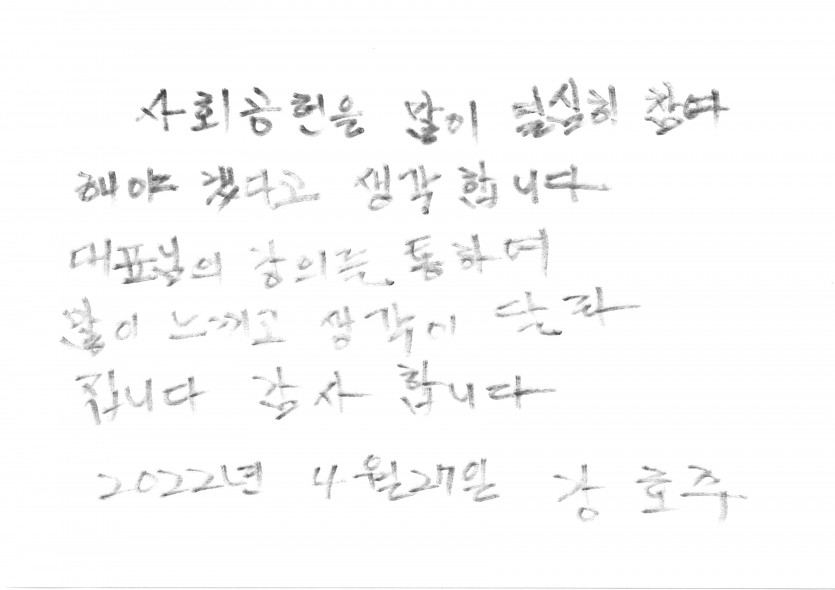 사회공헌을 많이 열심히 참여
해야 겠다고 생각 합니다
대표님의 강의를 통하여
많이 느끼고 생각이 달라
집니다 감사 합니다
2022년 4월27일 강 호 주